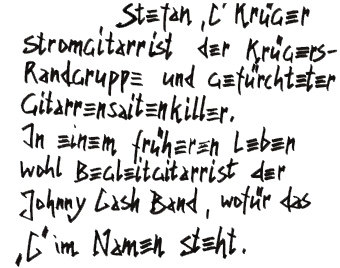 Stefan ,C' Krüger
Stromgitarrist der Krügers-
Randgruppe und gefürchteter
Gitarrensaitenkiller.
In einem früheren Leben
wohl Begleitgitarrist der
Johnny Cash Band, wofür das
,C' im Namen steht.